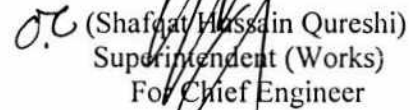 (Shafqat Hussain Qureshi)
Superintendent (Works)
For Chief Engineer